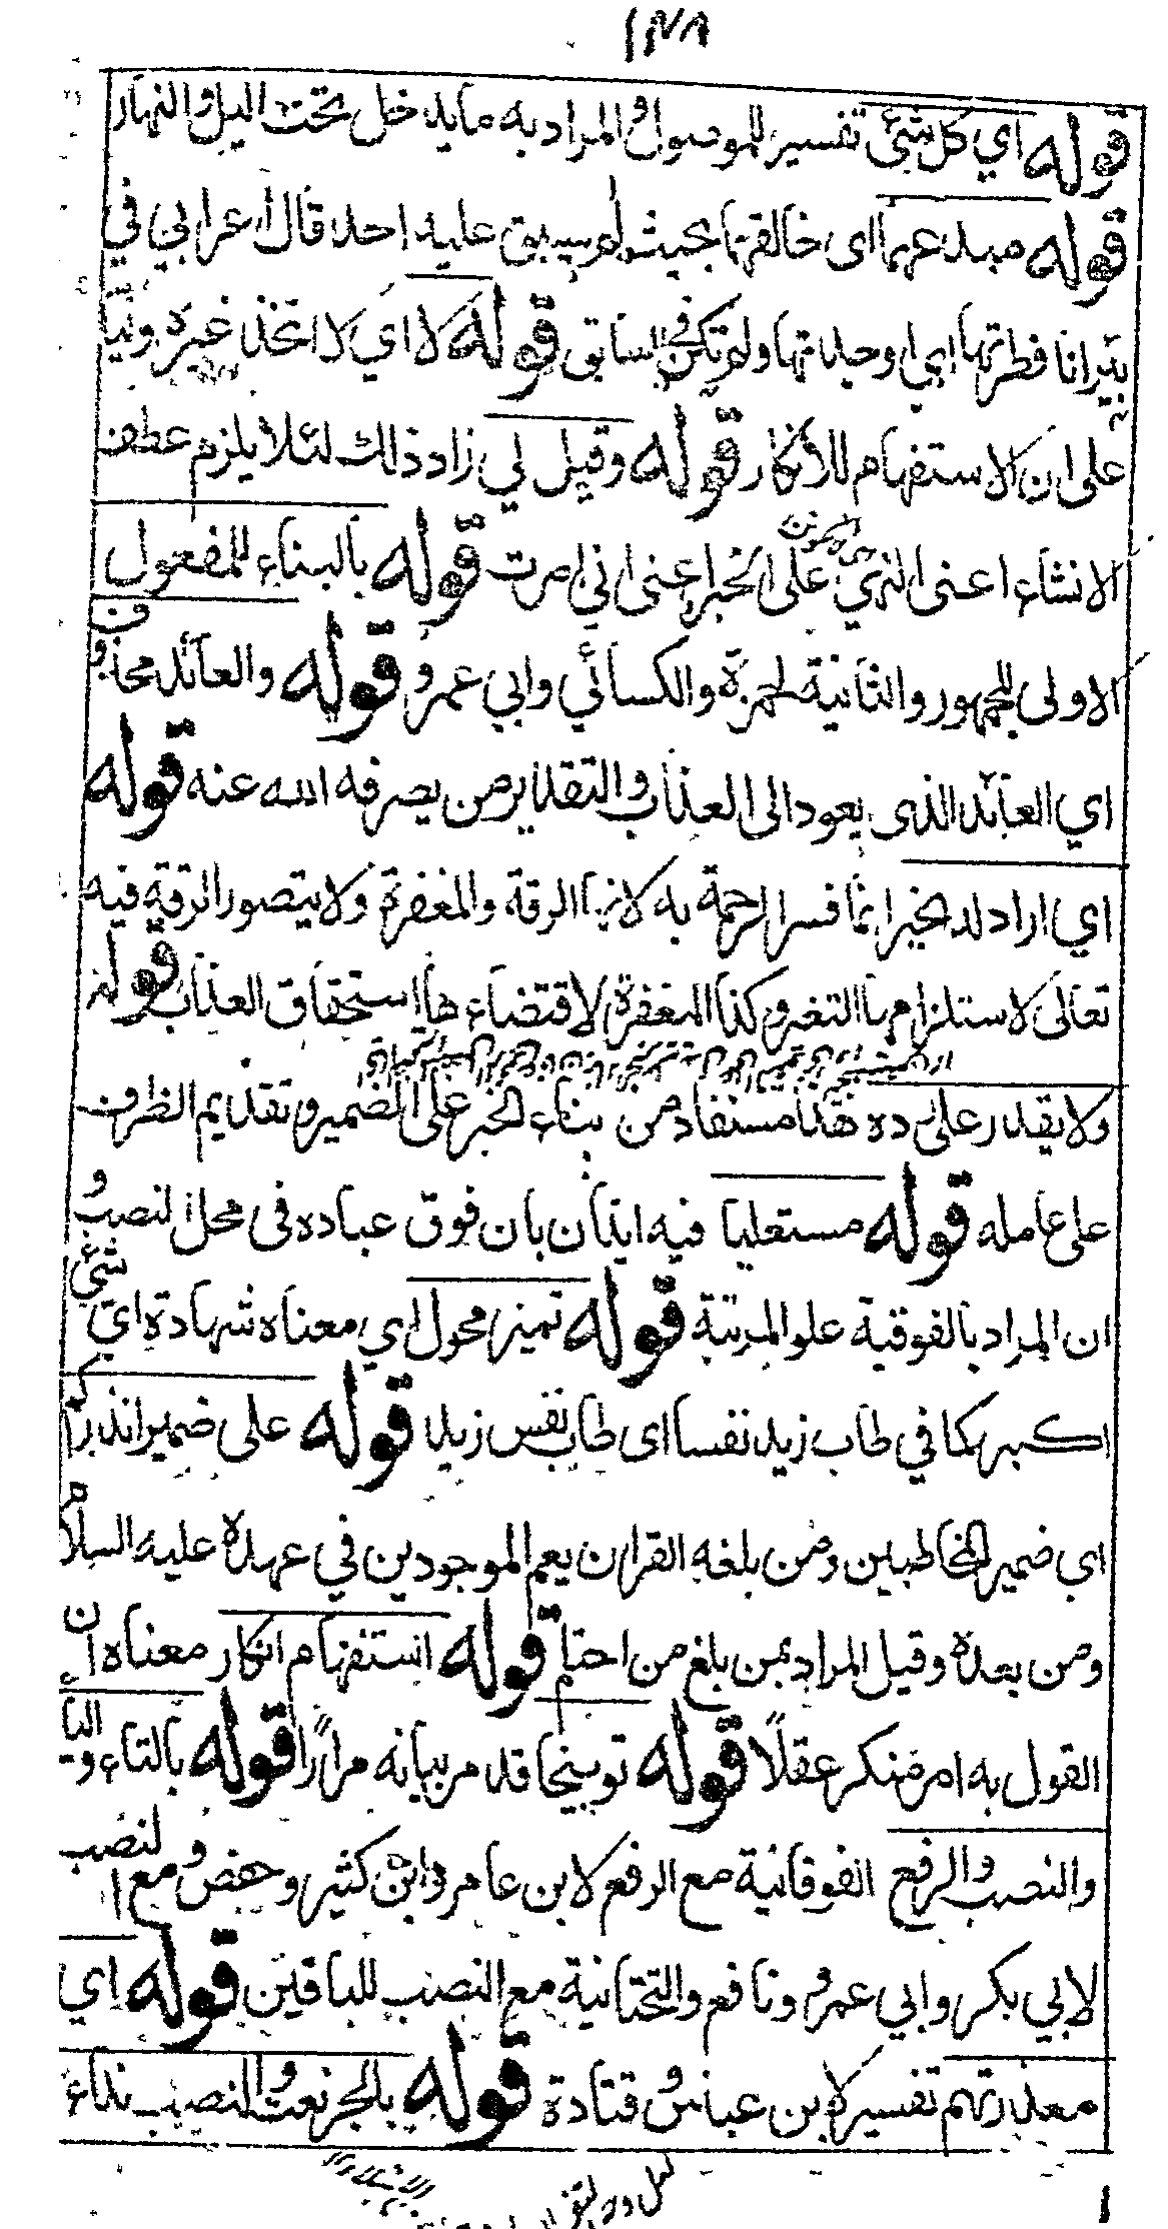 ١٣٨
قوله اي كل شئ تفسير للموصول والمراد به ما يدخل تحت اليل والنهار
قوله مبدعهما اى خالقهما بحيث لم يسبق عليه احد قال اعرابي في
بئر انا فطرتها اي اوحدتها ولم تكن في السابق قوله لا اي لا اتخذ غيره وليّا
على ان الاستفهام للانكار قوله وقيل لي زاد ذالك لئلا يلزم عطف
الانشاء اعنى النهي على الخبر اعنى اني امرت قوله بالبناء للمفعول
الاولى للجمهور والثانية لحمزة والكسائي وابي عمرو قوله والعائد محذوف
اي العائد الذى يعود الى العذاب والتقدير من يصرفه الله عنه قوله
اي اراد له الخير انما فسر الرحمة به لانها الرقة والمغفرة ولا يتصور الرقة فيه
تعالى لاستلزامها التغير وكذا المغفرة لاقتضاءها استحقاق العذاب قوله
ولا يقدر على رده هذا مستفاد من بناء الخبر على الضمير وتقديم الظرف
على عامله قوله مستعليا فيه ايذان بان فوق عباده فى محل النصب و
ان المراد بالفوقية علو المرتبة قوله تميز محول اي معناه شهادة اي شئ
اكبر كما في طاب زيد نفسا اى طاب نفس زيد قوله على ضمير انذركم
اي ضمير المخاطبين ومن بلغه القران يعم الموجودين في عهده عليه السلام
ومن بعده وقيل المراد بمن بلغ من احتلم قوله استفهام انكار معناه ان
القول به امر منكر عقلاً قوله توبيخا قد مر بيانه مراراً قوله بالتاء واليا
والنصب والرفع الفوقانية مع الرفع لابن عامر وابن كثير وحفص ومع النصب
لابي بكر وابي عمرو ونافع والتحتانية مع النصب للباقين قوله اي
معذرتهم تفسير لابن عباس وقتادة قوله بالجر نعت والنصب نداء